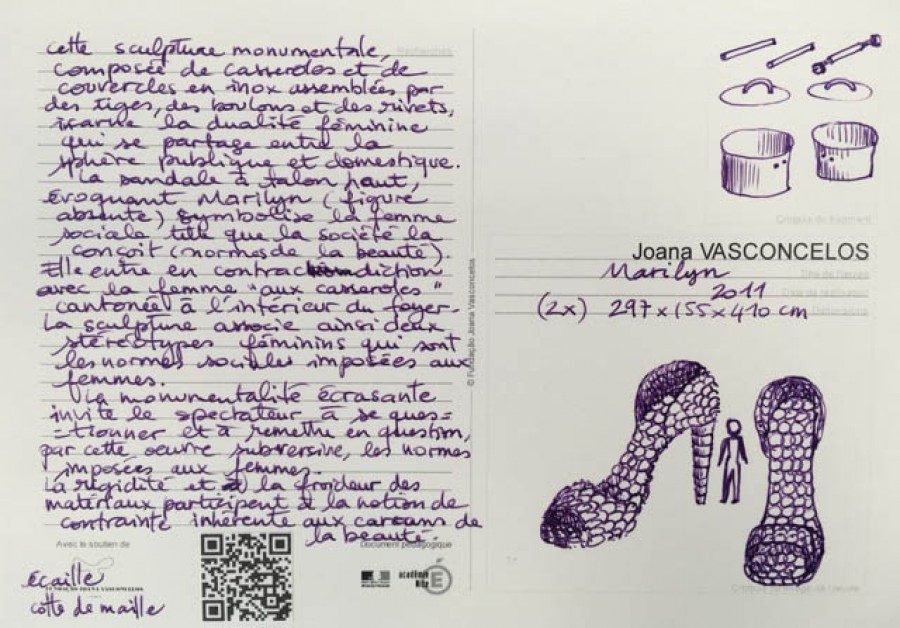 cette sculpture monumentale,
Recherches
composée de casseroles et de
couvercles en inox assemblées par
des tiges, des boulons et des rivets,
icarne la dualité féminine
qui se partage entre la
sphère publique et domestique.
La sandale à talon haut,
évoquant Marilyn (figure
absente) symbolise la femme
sociale telle que la société la
conçoit (normes de la beauté).
Elle entre en contradiction
avec la femme "aux casseroles"
cantonée à l'intérieur du foyer.
La sculpture associe ainsi deux
stéréotypes féminins qui sont
les normes sociales imposées aux
femmes.
La monumentalité écrasante
invite le spectateur à se ques=
=tionner et à remettre en question,
par cette oeuvre subversive, les normes
imposées aux femmes.
La rigidité et la froideur des
matériaux participent à la notion de
contrainte inhérente aux carcans de
la beauté.
Avec le soutien de
Document pédagogique
écaille
FUNDAÇÃO JOANA VASCONCELOS
cotte de maille
académie
É
© Fundação Joana Vasconcelos
Croquis du fragment
Joana VASCONCELOS
Marilyn
Titre de l'œuvre
2011
Date de réalisation
(2x) 297 x 155 x 410 cm
Dimensions